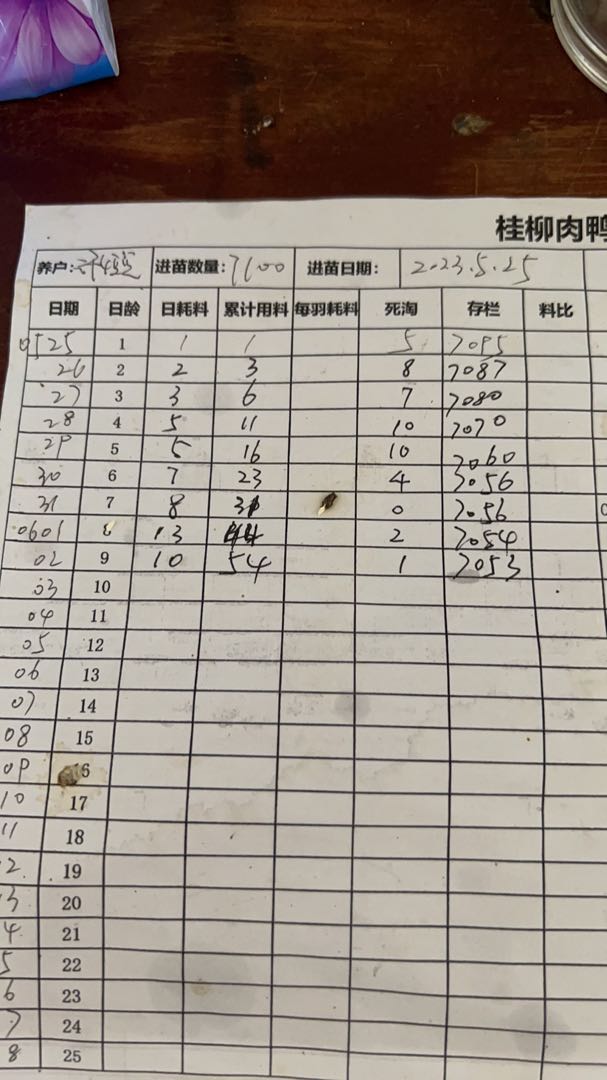 桂柳肉鸭
养户: 进苗数量: 7100 进苗日期: 2023.5.25
日期 日龄 日耗料 累计用料 每羽耗料 死淘 存栏 料比
0525 1 1 1 5 7095
26 2 2 3 8 7087
27 3 3 6 7 7080
28 4 5 11 10 7070
29 5 5 16 10 7060
30 6 7 23 4 7056
31 7 8 31 0 7056
0601 13 44 2 7054
02 9 10 54 1 7053
03 10
04 11
05 12
06 13
07 14
08 15
09 6
10 17
11 18
2 19
3 20
4 21
5 22
6 23
7 24
8 25